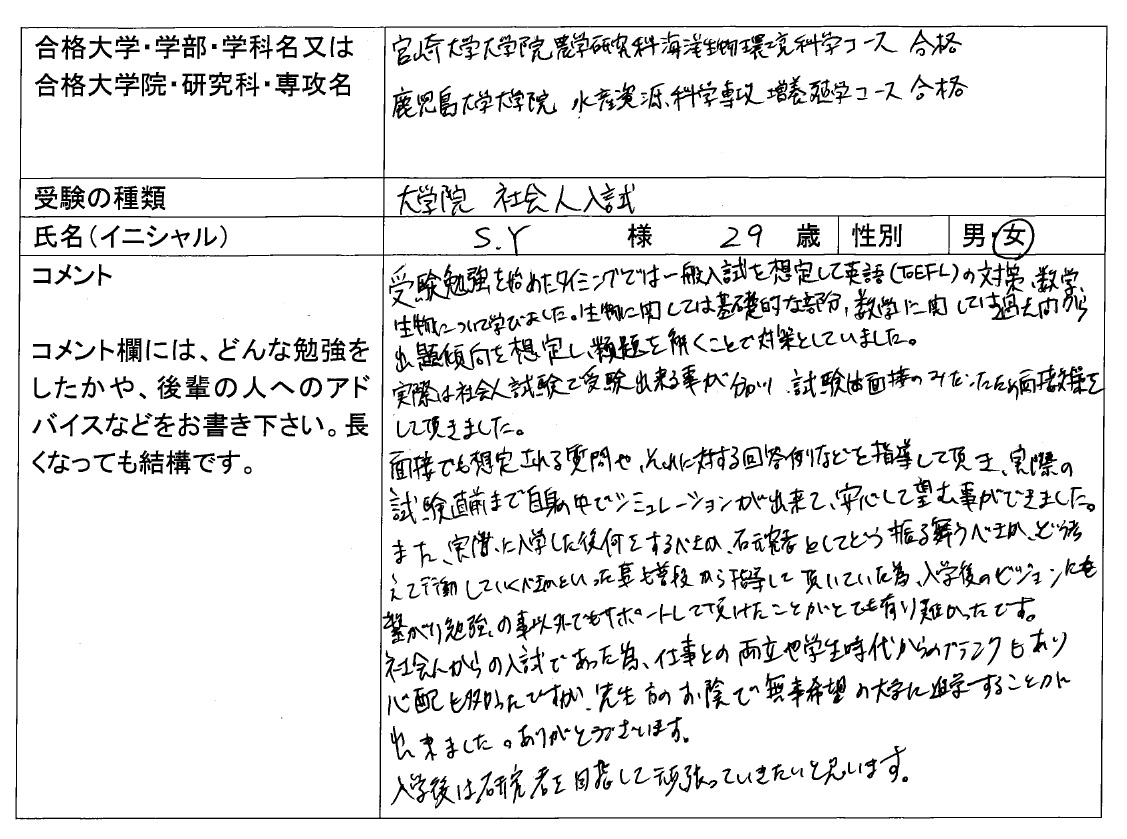 合格大学・学部・学科名又は
合格大学院・研究科・専攻名
宮崎大学大学院農学研究科海洋生物環境科学コース 合格
鹿児島大学大学院 水産資源科学専攻 増養殖学コース 合格
受験の種類
大学院 社会人入試
氏名(イニシャル)
S.Y 様 29 歳 性別 男・女
コメント
コメント欄には、どんな勉強を
したかや、後輩の人へのアド
バイスなどをお書き下さい。長
くなっても結構です。
受験勉強を始めたタイミングでは一般入試を想定して英語(TOEFL)の対策、数学、
生物について学びました。生物に関しては基礎的な部分、数学に関しては過去問から
出題傾向を想定し、類題を解くことで対策としていました。
実際は社会人試験で受験出来る事が分かり、試験は面接のみだったため面接対策を
して頂きました。
面接でも想定される質問や、それに対する回答例などを指導して頂き、実際の
試験直前まで自身の中でシミュレーションが出来て、安心して望む事ができました。
また、実際に入学した後何をするべきか、研究者としてどう振る舞うべきか、どう考
えて行動していくべきかといった事も普段から指導して頂いていた為、入学後のビジョンにも
繋がり勉強の事以外でもサポートして頂けたことがとても有り難かったです。
社会人からの入試であった為、仕事との両立や学生時代からのブランクもあり
心配も多かったですが、先生方のお陰で無事希望の大学に進学することが
出来ました。ありがとうございます。
入学後は研究者を目指して頑張っていきたいと思います。